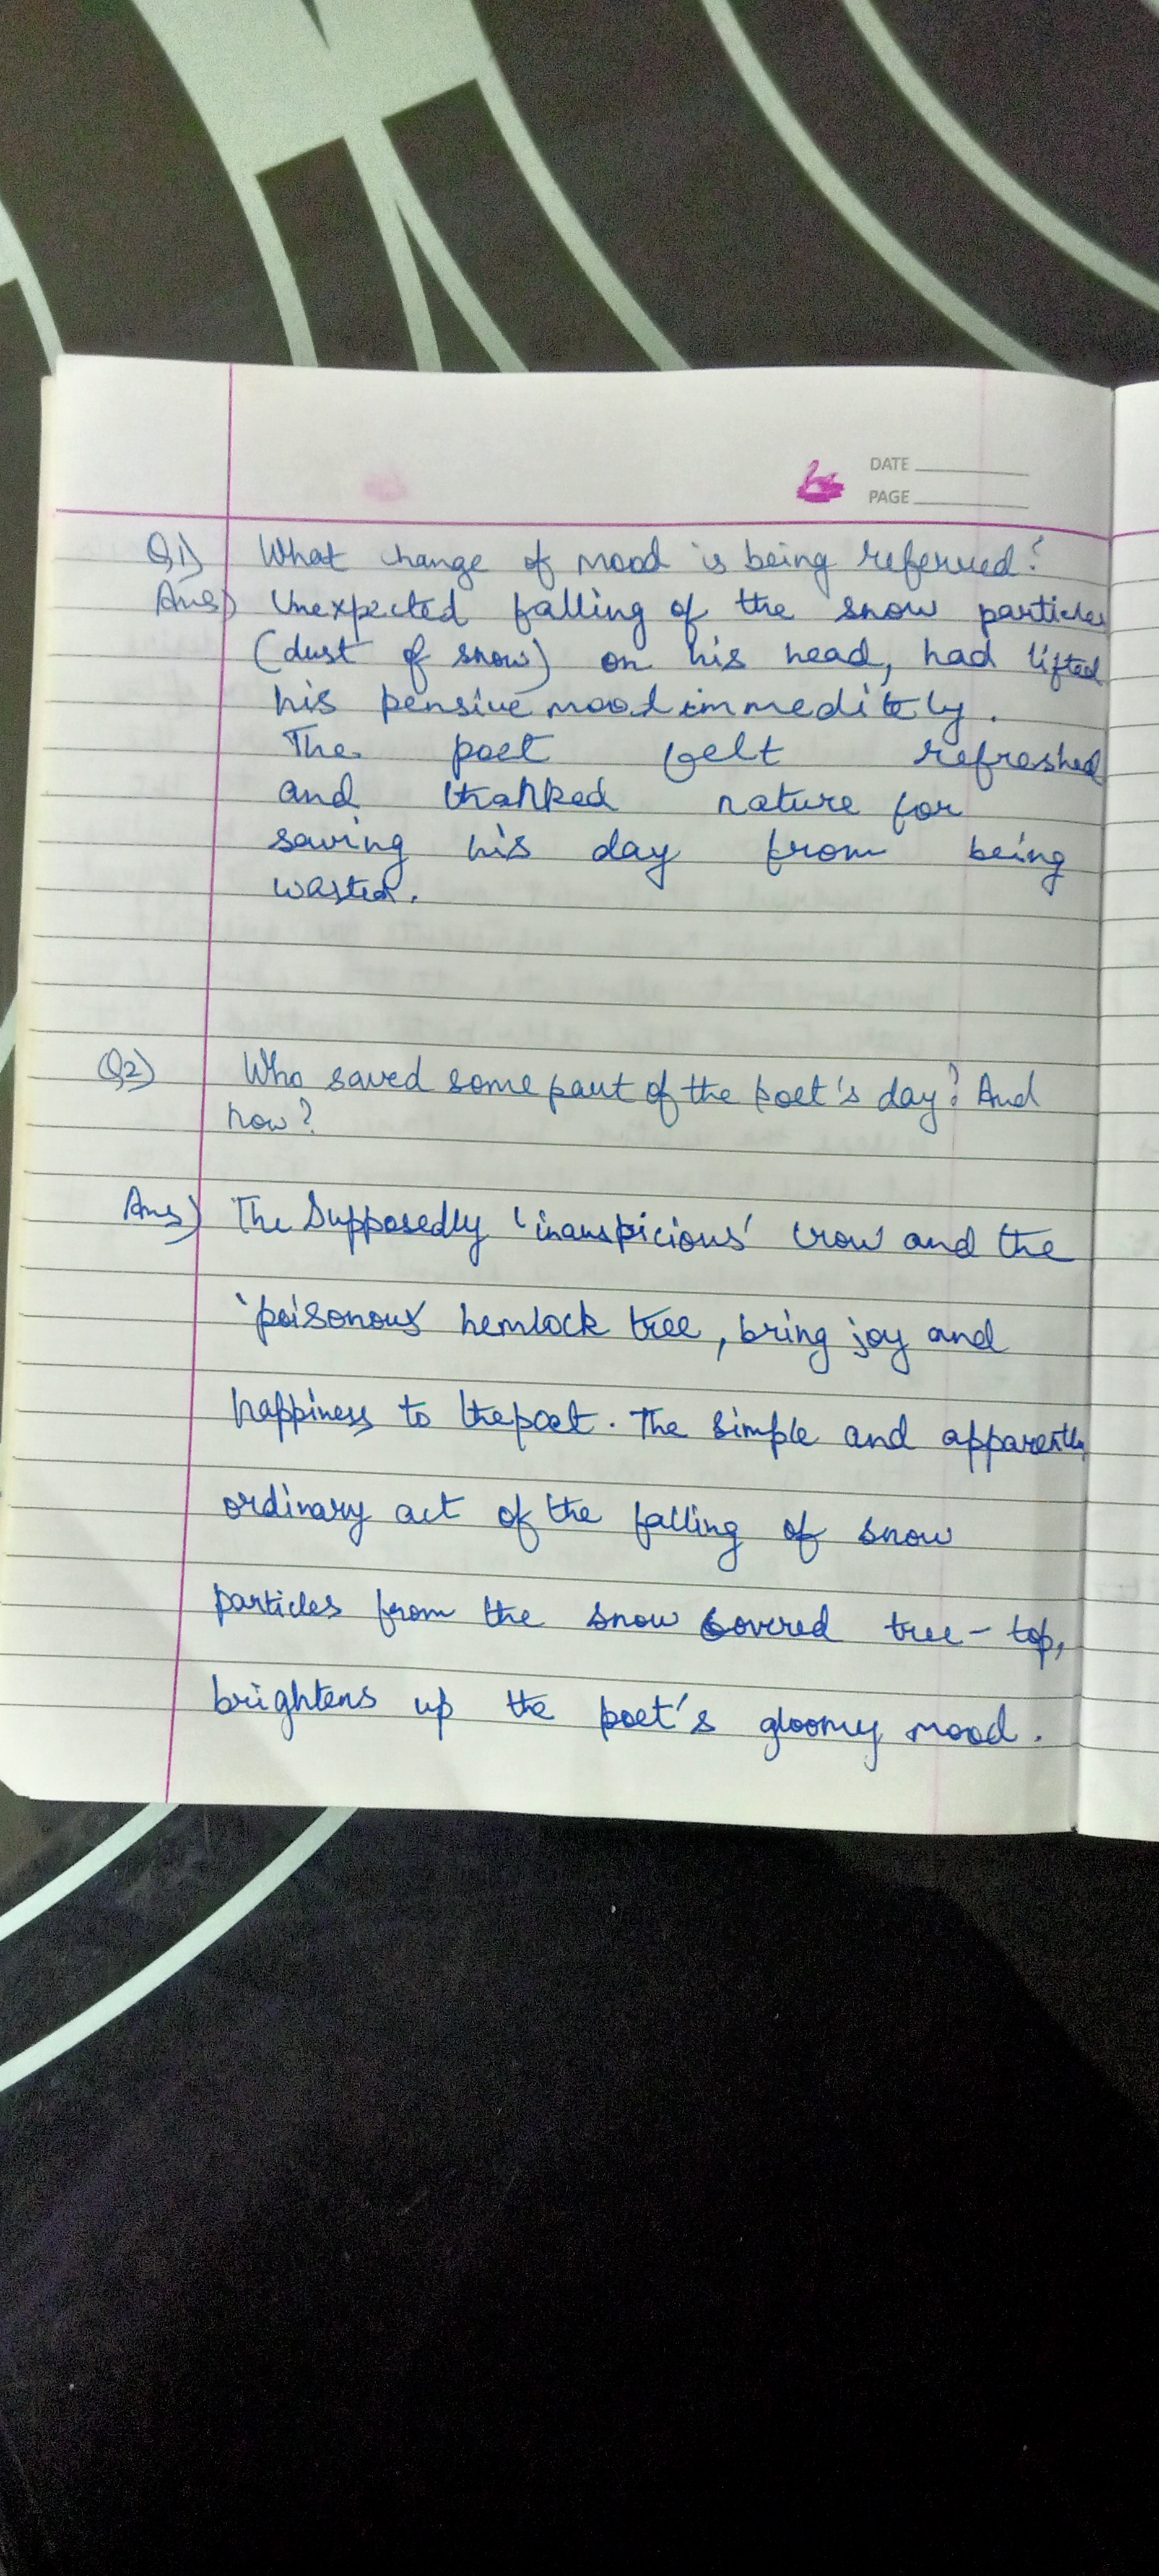 DATE
PAGE
Q1) What change of mood is being referred?
Ans) Unexpected falling of the snow particles
(dust of snow) on his head, had lifted
his pensive mood immeditely.
The poet felt refreshed
and thanked nature for
saving his day from being
wasted.
Q2) Who saved some part of the poet's day? And
how?
Ans) The Supposedly 'inauspicious' crow and the
'poisonous' hemlock tree, bring joy and
happiness to the poet. The simple and apparently
ordinary act of the falling of snow
particles from the snow covered tree-top,
brightens up the poet's gloomy mood.